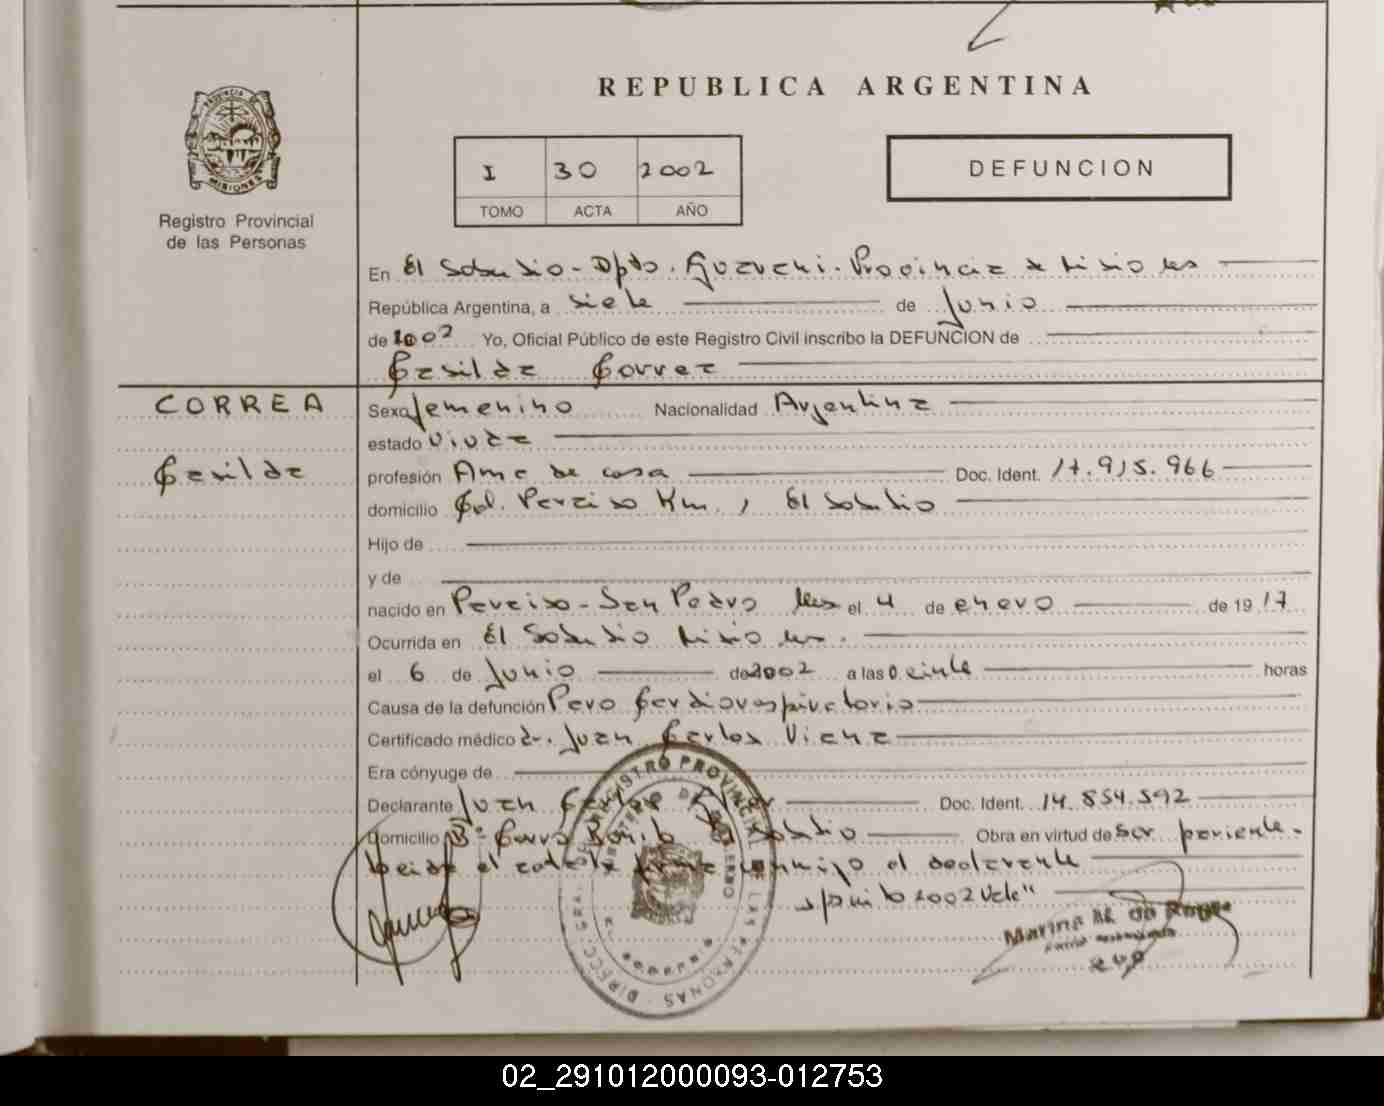 REPUBLICA ARGENTINA
PROVINCIA DE
MISIONES
Registro Provincial
de las Personas
I 30 2002
TOMO ACTA AÑO
DEFUNCION
En El Soberbio - Dpto. Guarani - Provincia de Misiones
República Argentina, a siete de Junio
de 2002 Yo, Oficial Público de este Registro Civil inscribo la DEFUNCION de
Casilda Correa
CORREA
Casilda
Sexo femenino Nacionalidad Argentina
estado viuda
profesión Ama de casa Doc. Ident. 17.915.966
domicilio Col. Paraiso Km. , El Soberbio
Hijo de
y de
nacido en Paraiso - San Pedro Mnes el 4 de enero de 1917
Ocurrida en El Soberbio Misiones.
el 6 de Junio de 2002 a las veinte horas
Causa de la defunción Paro Cardiorespiratorio
Certificado médico dr. Juan Carlos Viana
Era cónyuge de
Declarante Juan Carlos Doc. Ident. 14.854.592
Domicilio Bº Cerro Bonito El Soberbio Obra en virtud de ser pariente.
Leida el acta la firma conmigo el declarante
2002 Vale"
DIRECC. GRAL. DEL REGISTRO PROVINCIAL DE LAS PERSONAS
MINISTERIO DE GOBIERNO
02_291012000093-012753